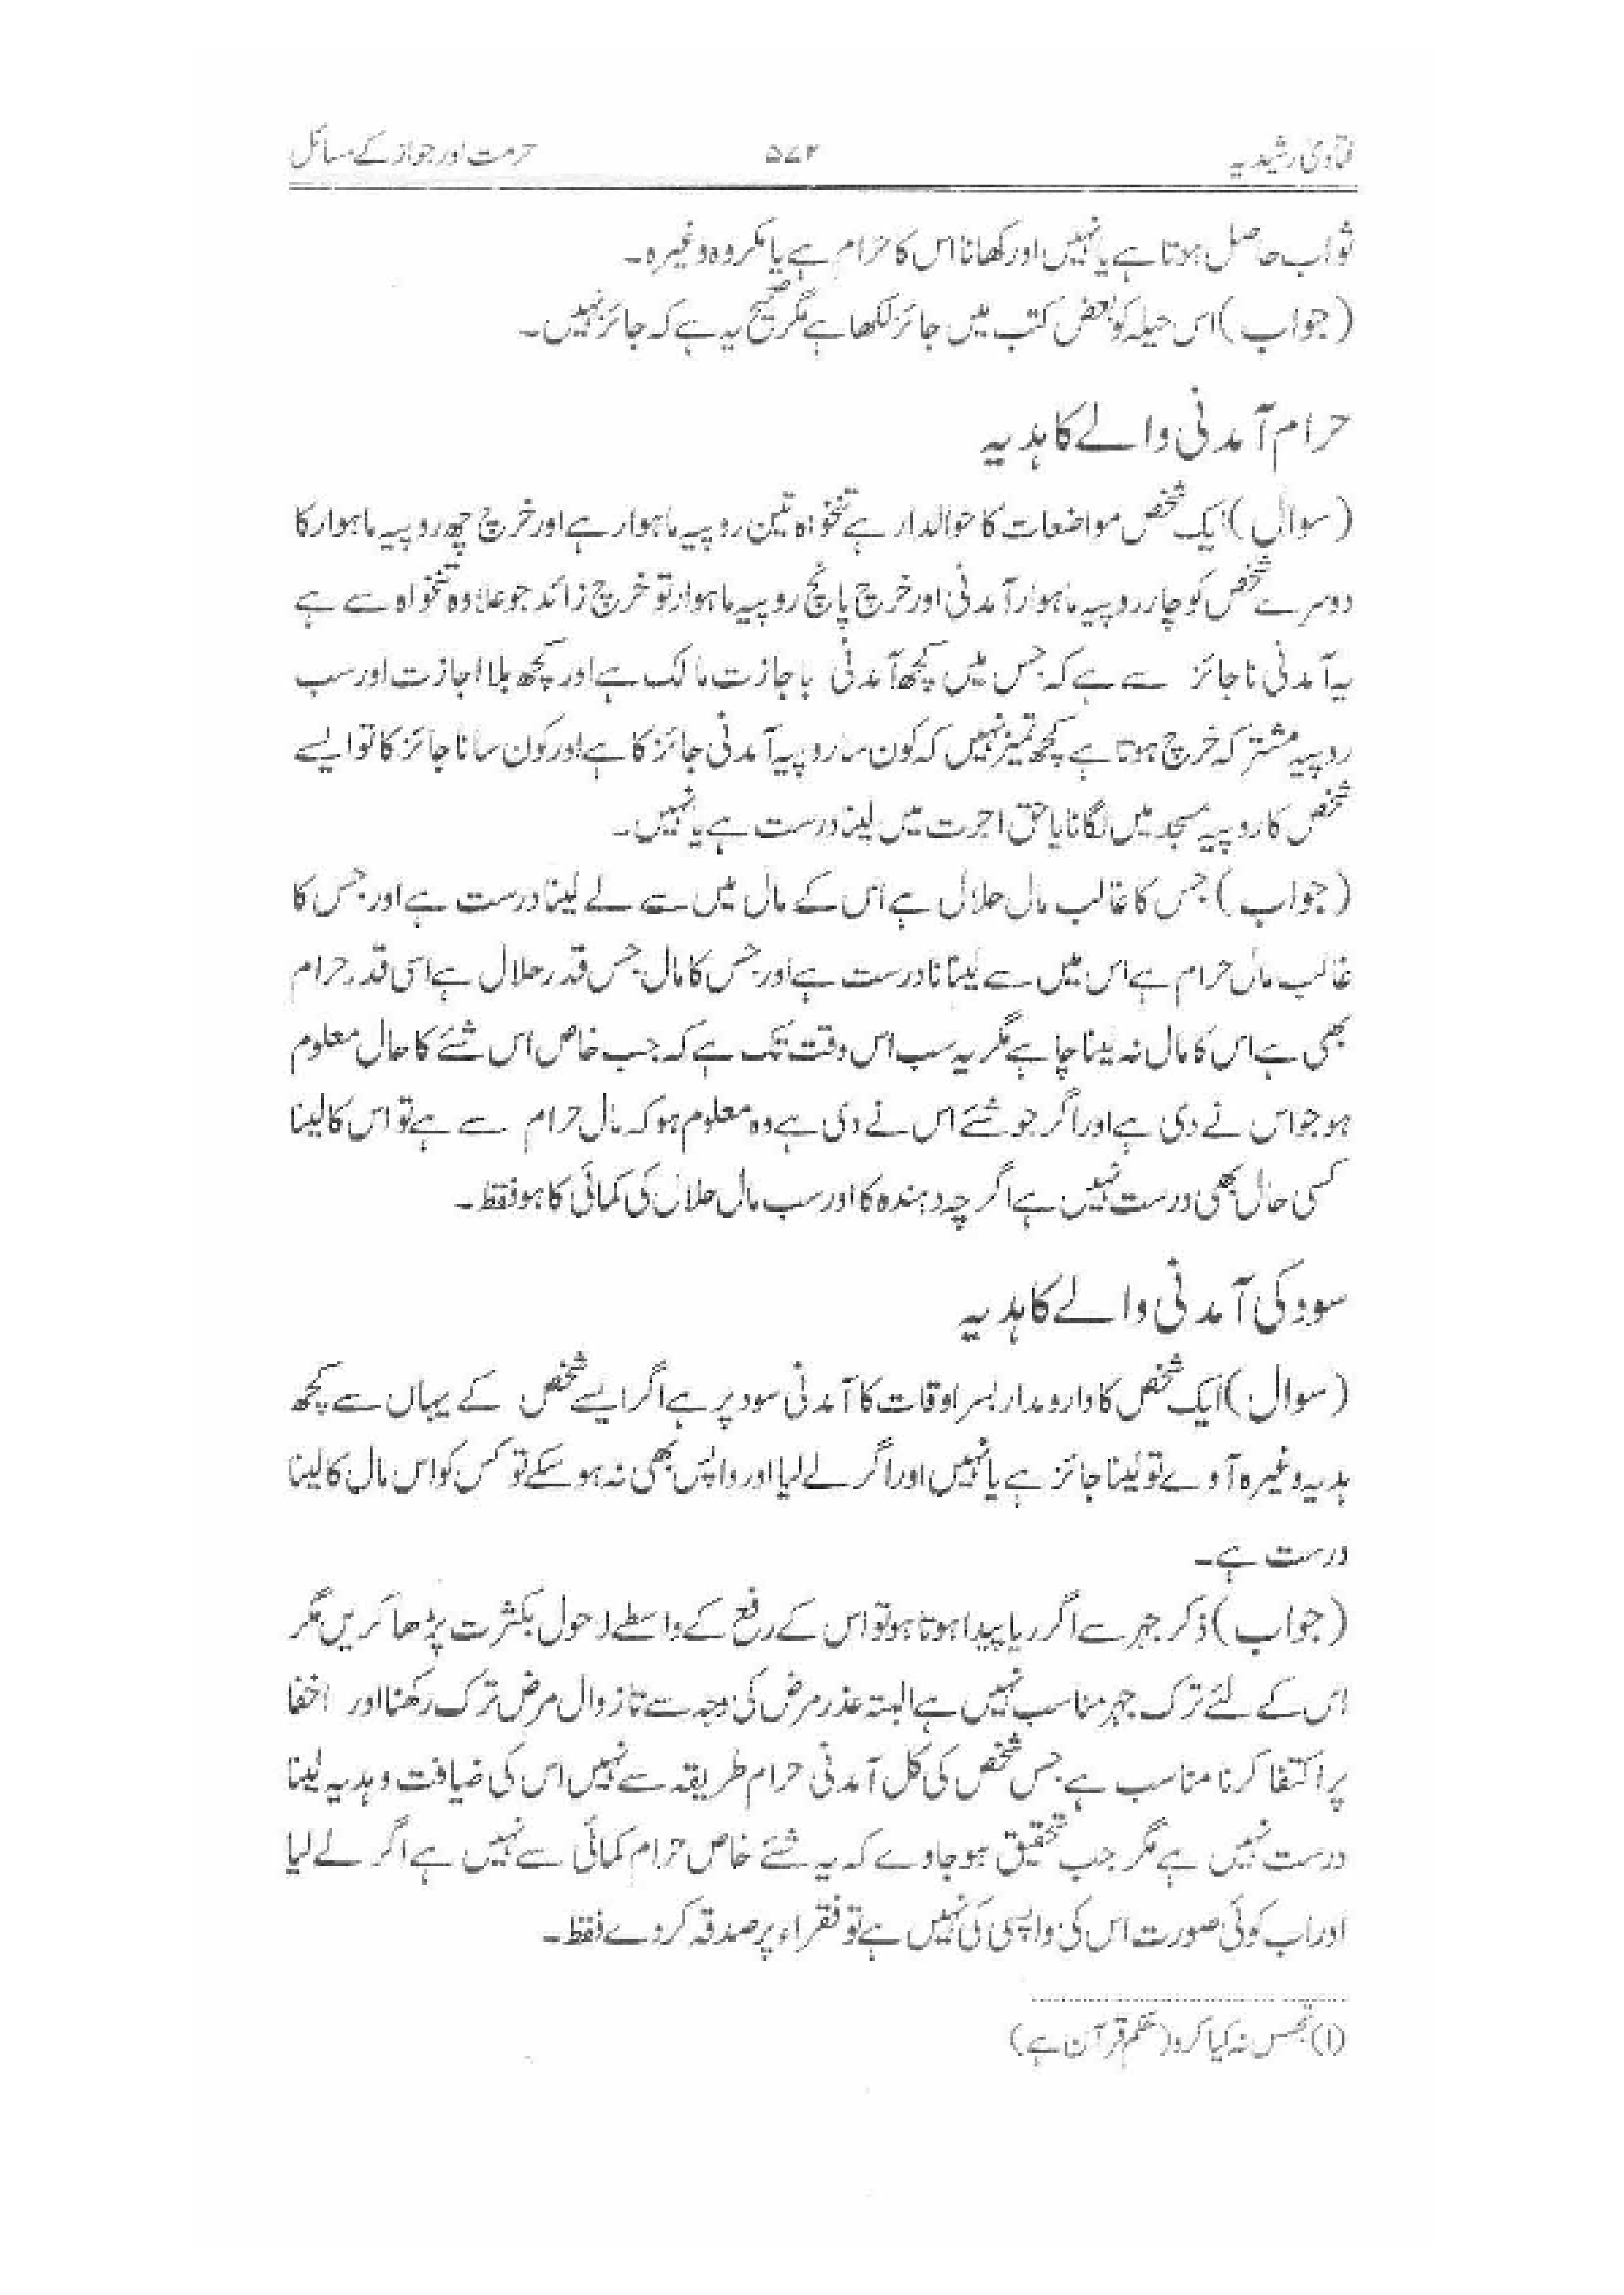 فتاویٰ رشیدیہ ۵۷۲ حرمت اور جواز کے مسائل
ثواب حاصل ہوتا ہے یا نہیں اور کھانا اس کا حرام ہے یا مکروہ وغیرہ۔
(جواب) اس حیلہ کو بعض کتب میں جائز لکھا ہے مگر صحیح یہ ہے کہ جائز نہیں۔
حرام آمدنی والے کا ہدیہ
(سوال) ایک شخص مواضعات کا حوالدار ہے تنخواہ تین روپیہ ماہوار ہے اور خرچ چھ روپیہ ماہوار کا
دوسرے شخص کو چار روپیہ ماہوار آمدنی اور خرچ پانچ روپیہ ماہوار تو خرچ زائد جو علاوہ تنخواہ سے ہے
یہ آمدنی ناجائز سے ہے کہ جس میں کچھ آمدنی باجازت مالک ہے اور کچھ بلا اجازت اور سب
روپیہ مشترکہ خرچ ہوتا ہے کچھ تمیز نہیں کہ کون سا روپیہ آمدنی جائز کا ہے اور کون سا ناجائز کا تو ایسے
شخص کا روپیہ مسجد میں لگانا یا حق اجرت میں لینا درست ہے یا نہیں۔
(جواب) جس کا غالب مال حلال ہے اس کے مال میں سے لے لینا درست ہے اور جس کا
غالب مال حرام ہے اس میں سے لینا نا درست ہے اور جس کا مال جس قدر حلال ہے اسی قدر حرام
بھی ہے اس کا مال نہ لینا چاہے مگر یہ سب اس وقت تک ہے کہ جب خاص اس شئے کا حال معلوم
ہو جو اس نے دی ہے اور اگر جو شئے اس نے دی ہے وہ معلوم ہو کہ مال حرام سے ہے تو اس کا لینا
کسی حال بھی درست نہیں ہے اگر چہ دہندہ کا اور سب مال حلال کی کمائی کا ہو فقط۔
سود کی آمدنی والے کا ہدیہ
(سوال) ایک شخص کا دارومدار بسر اوقات کا آمدنی سود پر ہے اگر ایسے شخص کے یہاں سے کچھ
ہدیہ وغیرہ آوے تو لینا جائز ہے یا نہیں اور اگر لے لیا اور واپس بھی نہ ہو سکے تو کس کو اس مال کا لینا
درست ہے۔
(جواب) ذکر جہر سے اگر ریا پیدا ہوتا ہو تو اس کے رفع کے واسطے لاحول بکثرت پڑھا کریں مگر
اس کے لئے ترک جہر مناسب نہیں ہے البتہ عذر مرض کی وجہ سے تا زوال مرض ترک رکھنا اور اخفا
پر اکتفا کرنا مناسب ہے جس شخص کی کل آمدنی حرام طریقہ سے نہیں اس کی ضیافت و ہدیہ لینا
درست نہیں ہے مگر جب تحقیق ہو جاوے کہ یہ شئے خاص حرام کمائی سے نہیں ہے اگر لے لیا
اور اب کوئی صورت اس کی واپسی کی نہیں ہے تو فقراء پر صدقہ کر دے فقط۔
(۱) تجسس نہ کیا کرو (حکم قرآن ہے)